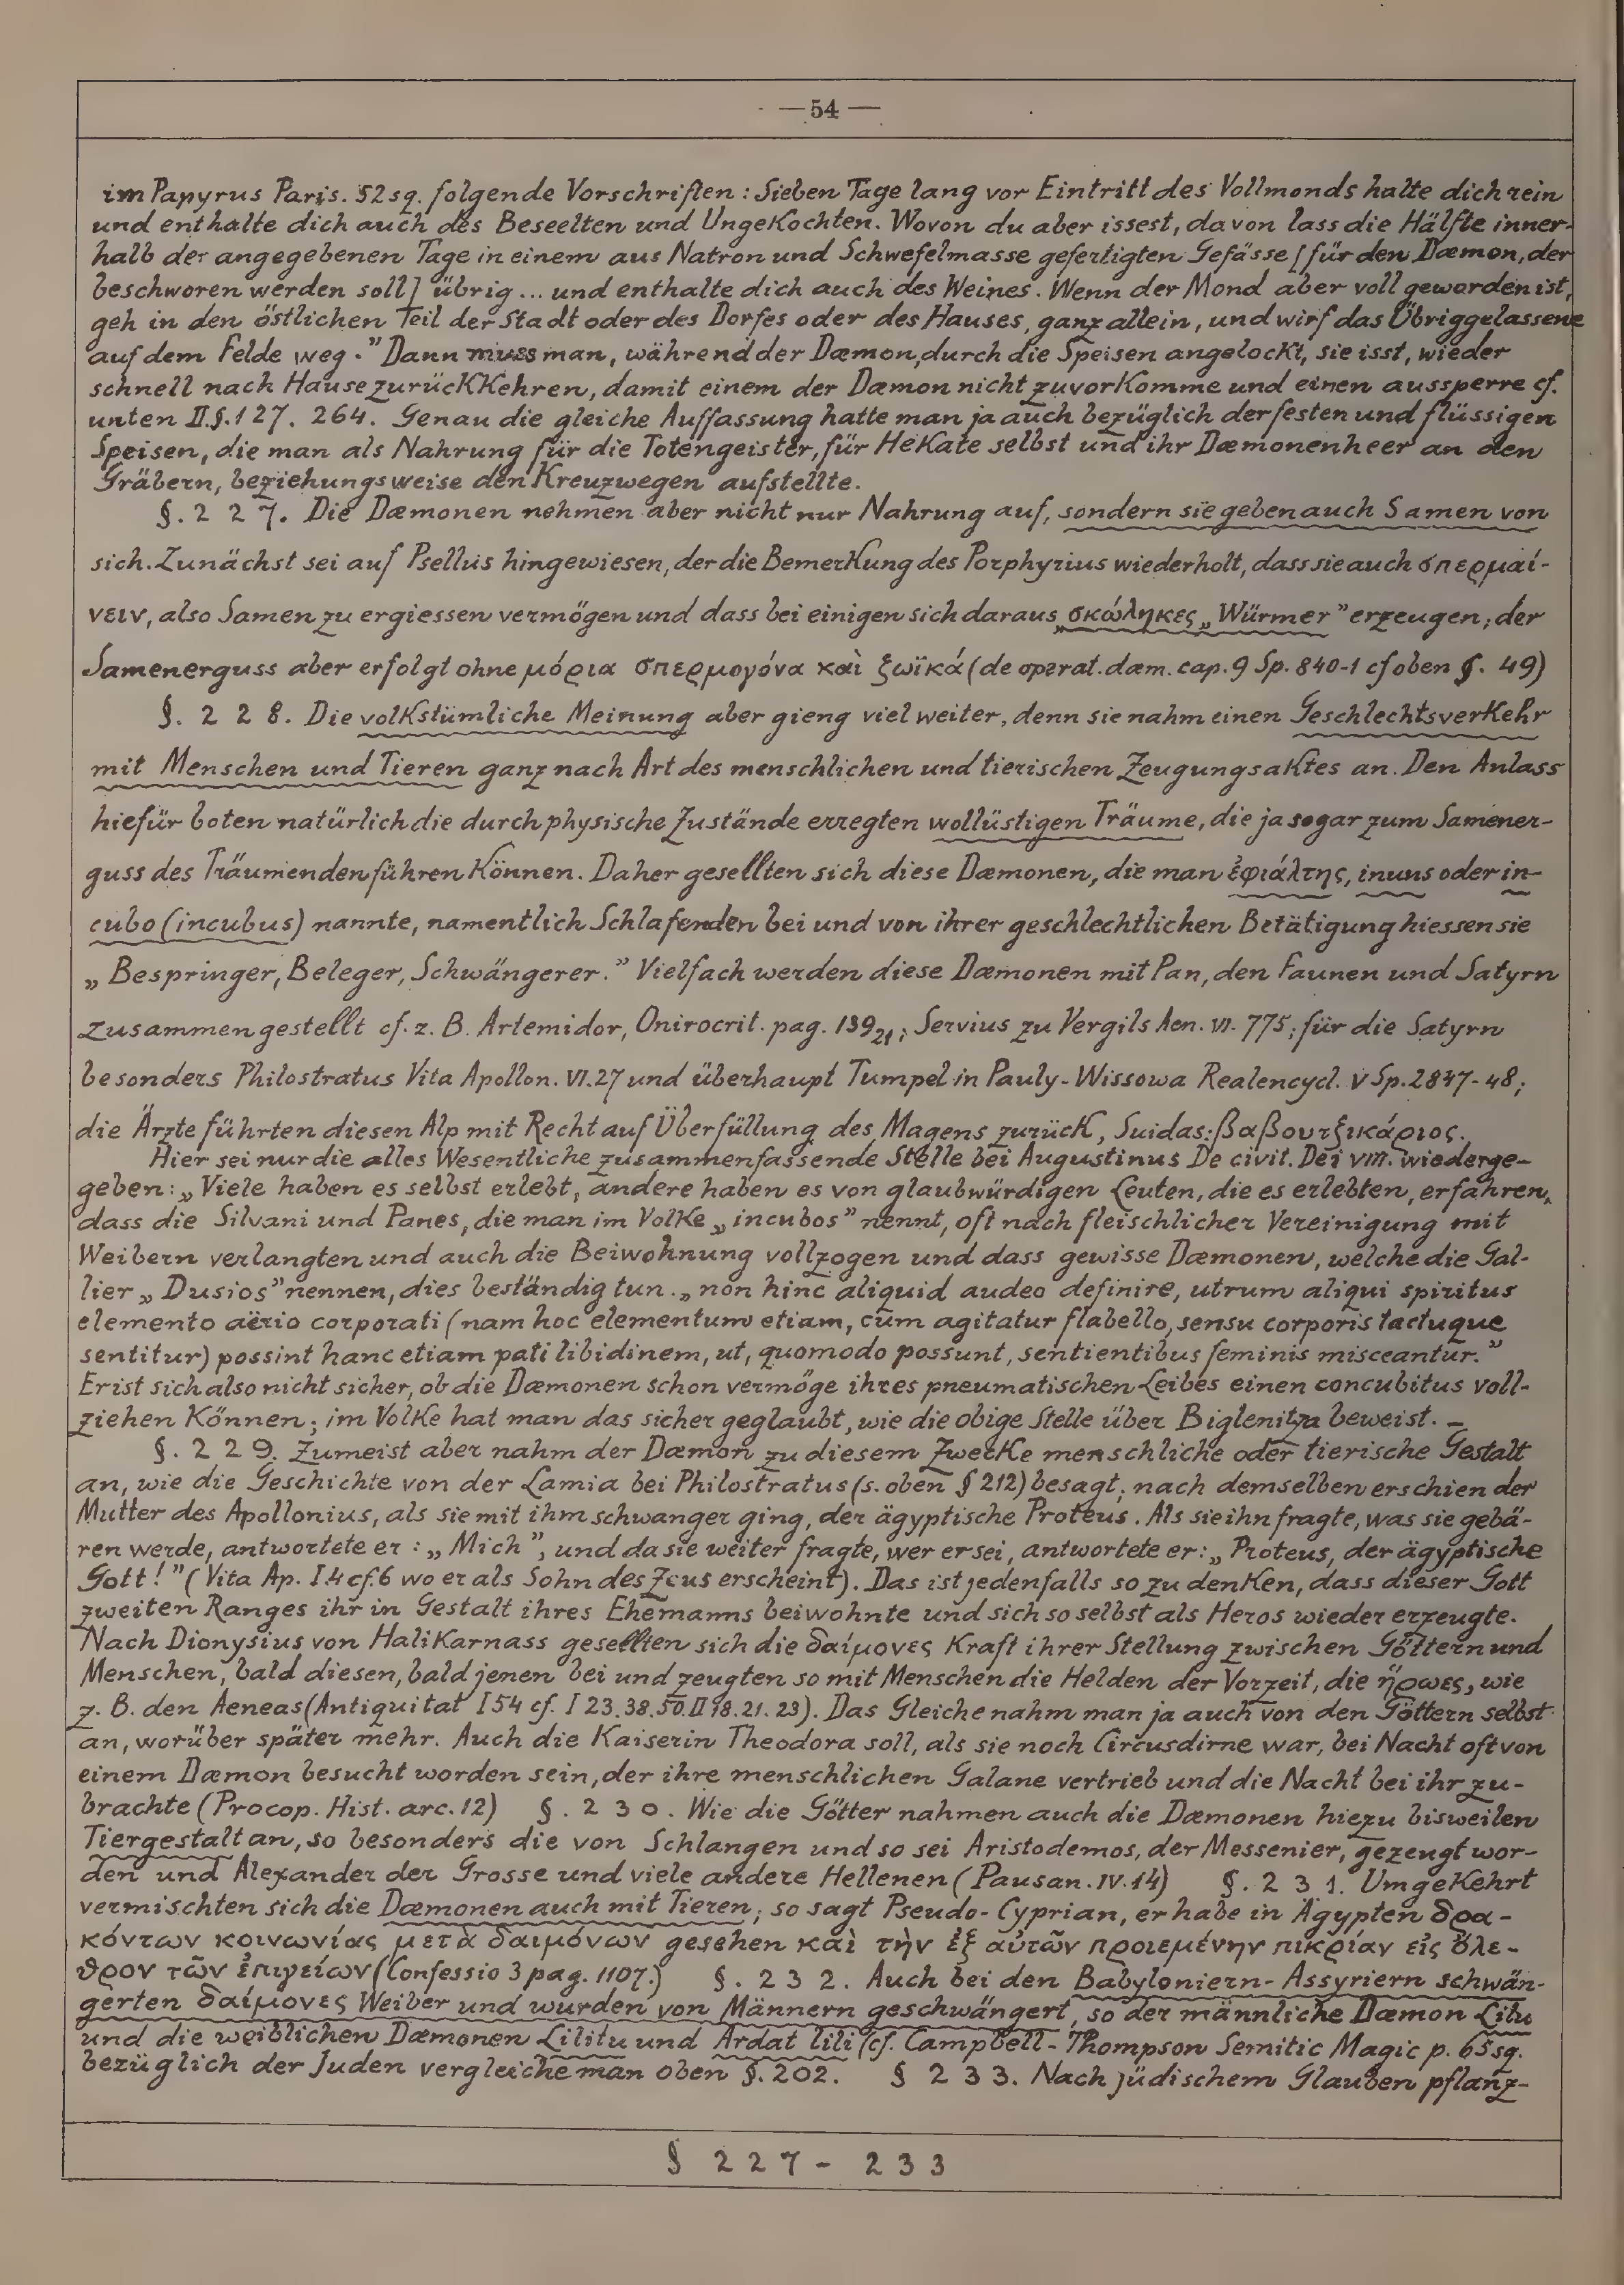 —54—
im Papyrus Paris. 52 sq. folgende Vorschriften: Sieben Tage lang vor Eintritt des Vollmonds halte dich rein
und enthalte dich auch des Beseelten und Ungekochten. Wovon du aber issest, davon lass die Hälfte inner-
halb der angegebenen Tage in einem aus Natron und Schwefelmasse gefertigten Gefässe [für den Dæmon, der
beschworen werden soll] übrig ... und enthalte dich auch des Weines. Wenn der Mond aber voll geworden ist,
geh in den östlichen Teil der Stadt oder des Dorfes oder des Hauses, ganz allein, und wirf das Übriggelassene
auf dem Felde weg." Dann muss man, während der Dæmon, durch die Speisen angelockt, sie isst, wieder
schnell nach Hause zurückkehren, damit einem der Dæmon nicht zuvorkomme und einen aussperre cf.
unten II.§.127. 264. Genau die gleiche Auffassung hatte man ja auch bezüglich der festen und flüssigen
Speisen, die man als Nahrung für die Totengeister, für Hekate selbst und ihr Dæmonenheer an den
Gräbern, beziehungsweise den Kreuzwegen aufstellte.
§. 2 2 7. Die Dæmonen nehmen aber nicht nur Nahrung auf, sondern sie geben auch Samen von
sich. Zunächst sei auf Psellus hingewiesen, der die Bemerkung des Porphyrius wiederholt, dass sie auch σπερμαί-
νειν, also Samen zu ergiessen vermögen und dass bei einigen sich daraus „σκώληκες„ Würmer" erzeugen; der
Samenerguss aber erfolgt ohne μόρια σπερμογόνα καὶ ζωϊκά (de operat. dæm. cap. 9 Sp. 840-1 cf oben §. 49)
§. 2 2 8. Die volkstümliche Meinung aber gieng viel weiter, denn sie nahm einen Geschlechtsverkehr
mit Menschen und Tieren ganz nach Art des menschlichen und tierischen Zeugungsaktes an. Den Anlass
hiefür boten natürlich die durch physische Zustände erregten wollüstigen Träume, die ja sogar zum Samener-
guss des Träumenden führen können. Daher gesellten sich diese Dæmonen, die man ἐφιάλτης, inuus oder in-
cubo (incubus) nannte, namentlich Schlafenden bei und von ihrer geschlechtlichen Betätigung hiessen sie
„Bespringer, Beleger, Schwängerer." Vielfach werden diese Dæmonen mit Pan, den Faunen und Satyrn
zusammengestellt cf. z. B. Artemidor, Onirocrit. pag. 139₂₁; Servius zu Vergils Aen. VI. 775; für die Satyrn
besonders Philostratus Vita Apollon. VI.27 und überhaupt Tümpel in Pauly-Wissowa Realencycl. V Sp. 2847-48;
die Ärzte führten diesen Alp mit Recht auf Überfüllung des Magens zurück, Suidas: βαβουτζικάριος.
Hier sei nur die alles Wesentliche zusammenfassende Stelle bei Augustinus De civit. Dei VIII. wiederge-
geben: „Viele haben es selbst erlebt, andere haben es von glaubwürdigen Leuten, die es erlebten, erfahren,
dass die Silvani und Panes, die man im Volke „incubos" nennt, oft nach fleischlicher Vereinigung mit
Weibern verlangten und auch die Beiwohnung vollzogen und dass gewisse Dæmonen, welche die Gal-
lier „Dusios" nennen, dies beständig tun. „non hinc aliquid audeo definire, utrum aliqui spiritus
elemento aërio corporati (nam hoc elementum etiam, cum agitatur flabello, sensu corporis tactuque
sentitur) possint hanc etiam pati libidinem, ut, quomodo possunt, sentientibus feminis misceantur."
Er ist sich also nicht sicher, ob die Dæmonen schon vermöge ihres pneumatischen Leibes einen concubitus voll-
ziehen können; im Volke hat man das sicher geglaubt, wie die obige Stelle über Biglenitza beweist. —
§. 2 2 9. Zumeist aber nahm der Dæmon zu diesem Zwecke menschliche oder tierische Gestalt
an, wie die Geschichte von der Lamia bei Philostratus (s. oben § 212) besagt; nach demselben erschien der
Mutter des Apollonius, als sie mit ihm schwanger ging, der ägyptische Proteus. Als sie ihn fragte, was sie gebä-
ren werde, antwortete er: „Mich", und da sie weiter fragte, wer er sei, antwortete er: „Proteus, der ägyptische
Gott!" (Vita Ap. I 4 cf. 6 wo er als Sohn des Zeus erscheint). Das ist jedenfalls so zu denken, dass dieser Gott
zweiten Ranges ihr in Gestalt ihres Ehemanns beiwohnte und sich so selbst als Heros wieder erzeugte.
Nach Dionysius von Halikarnass gesellten sich die δαίμονες kraft ihrer Stellung zwischen Göttern und
Menschen, bald diesen, bald jenen bei und zeugten so mit Menschen die Helden der Vorzeit, die ἥρωες, wie
z. B. den Aeneas (Antiquitat I 54 cf. I 23. 38. 50. II 18. 21. 23). Das Gleiche nahm man ja auch von den Göttern selbst
an, worüber später mehr. Auch die Kaiserin Theodora soll, als sie noch Circusdirne war, bei Nacht oft von
einem Dæmon besucht worden sein, der ihre menschlichen Galane vertrieb und die Nacht bei ihr zu-
brachte (Procop. Hist. arc. 12) §. 2 3 0. Wie die Götter nahmen auch die Dæmonen hiezu bisweilen
Tiergestalt an, so besonders die von Schlangen und so sei Aristodemos, der Messenier, gezeugt wor-
den und Alexander der Grosse und viele andere Hellenen (Pausan. IV. 14) §. 2 3 1. Umgekehrt
vermischten sich die Dæmonen auch mit Tieren; so sagt Pseudo-Cyprian, er habe in Ägypten δρα-
κόντων κοινωνίας μετὰ δαιμόνων gesehen καὶ τὴν ἐξ αὐτῶν προιεμένην πικρίαν εἰς ὄλε-
θρον τῶν ἐπιγείων (Confessio 3 pag. 1107.) §. 2 3 2. Auch bei den Babyloniern-Assyriern schwän-
gerten δαίμονες Weiber und wurden von Männern geschwängert, so der männliche Dæmon Lilu
und die weiblichen Dæmonen Lilitu und Ardat lili (cf. Campbell-Thompson Semitic Magic p. 65 sq.
bezüglich der Juden vergleiche man oben §. 202. § 2 3 3. Nach jüdischem Glauben pflanz-
§ 2 2 7 - 2 3 3